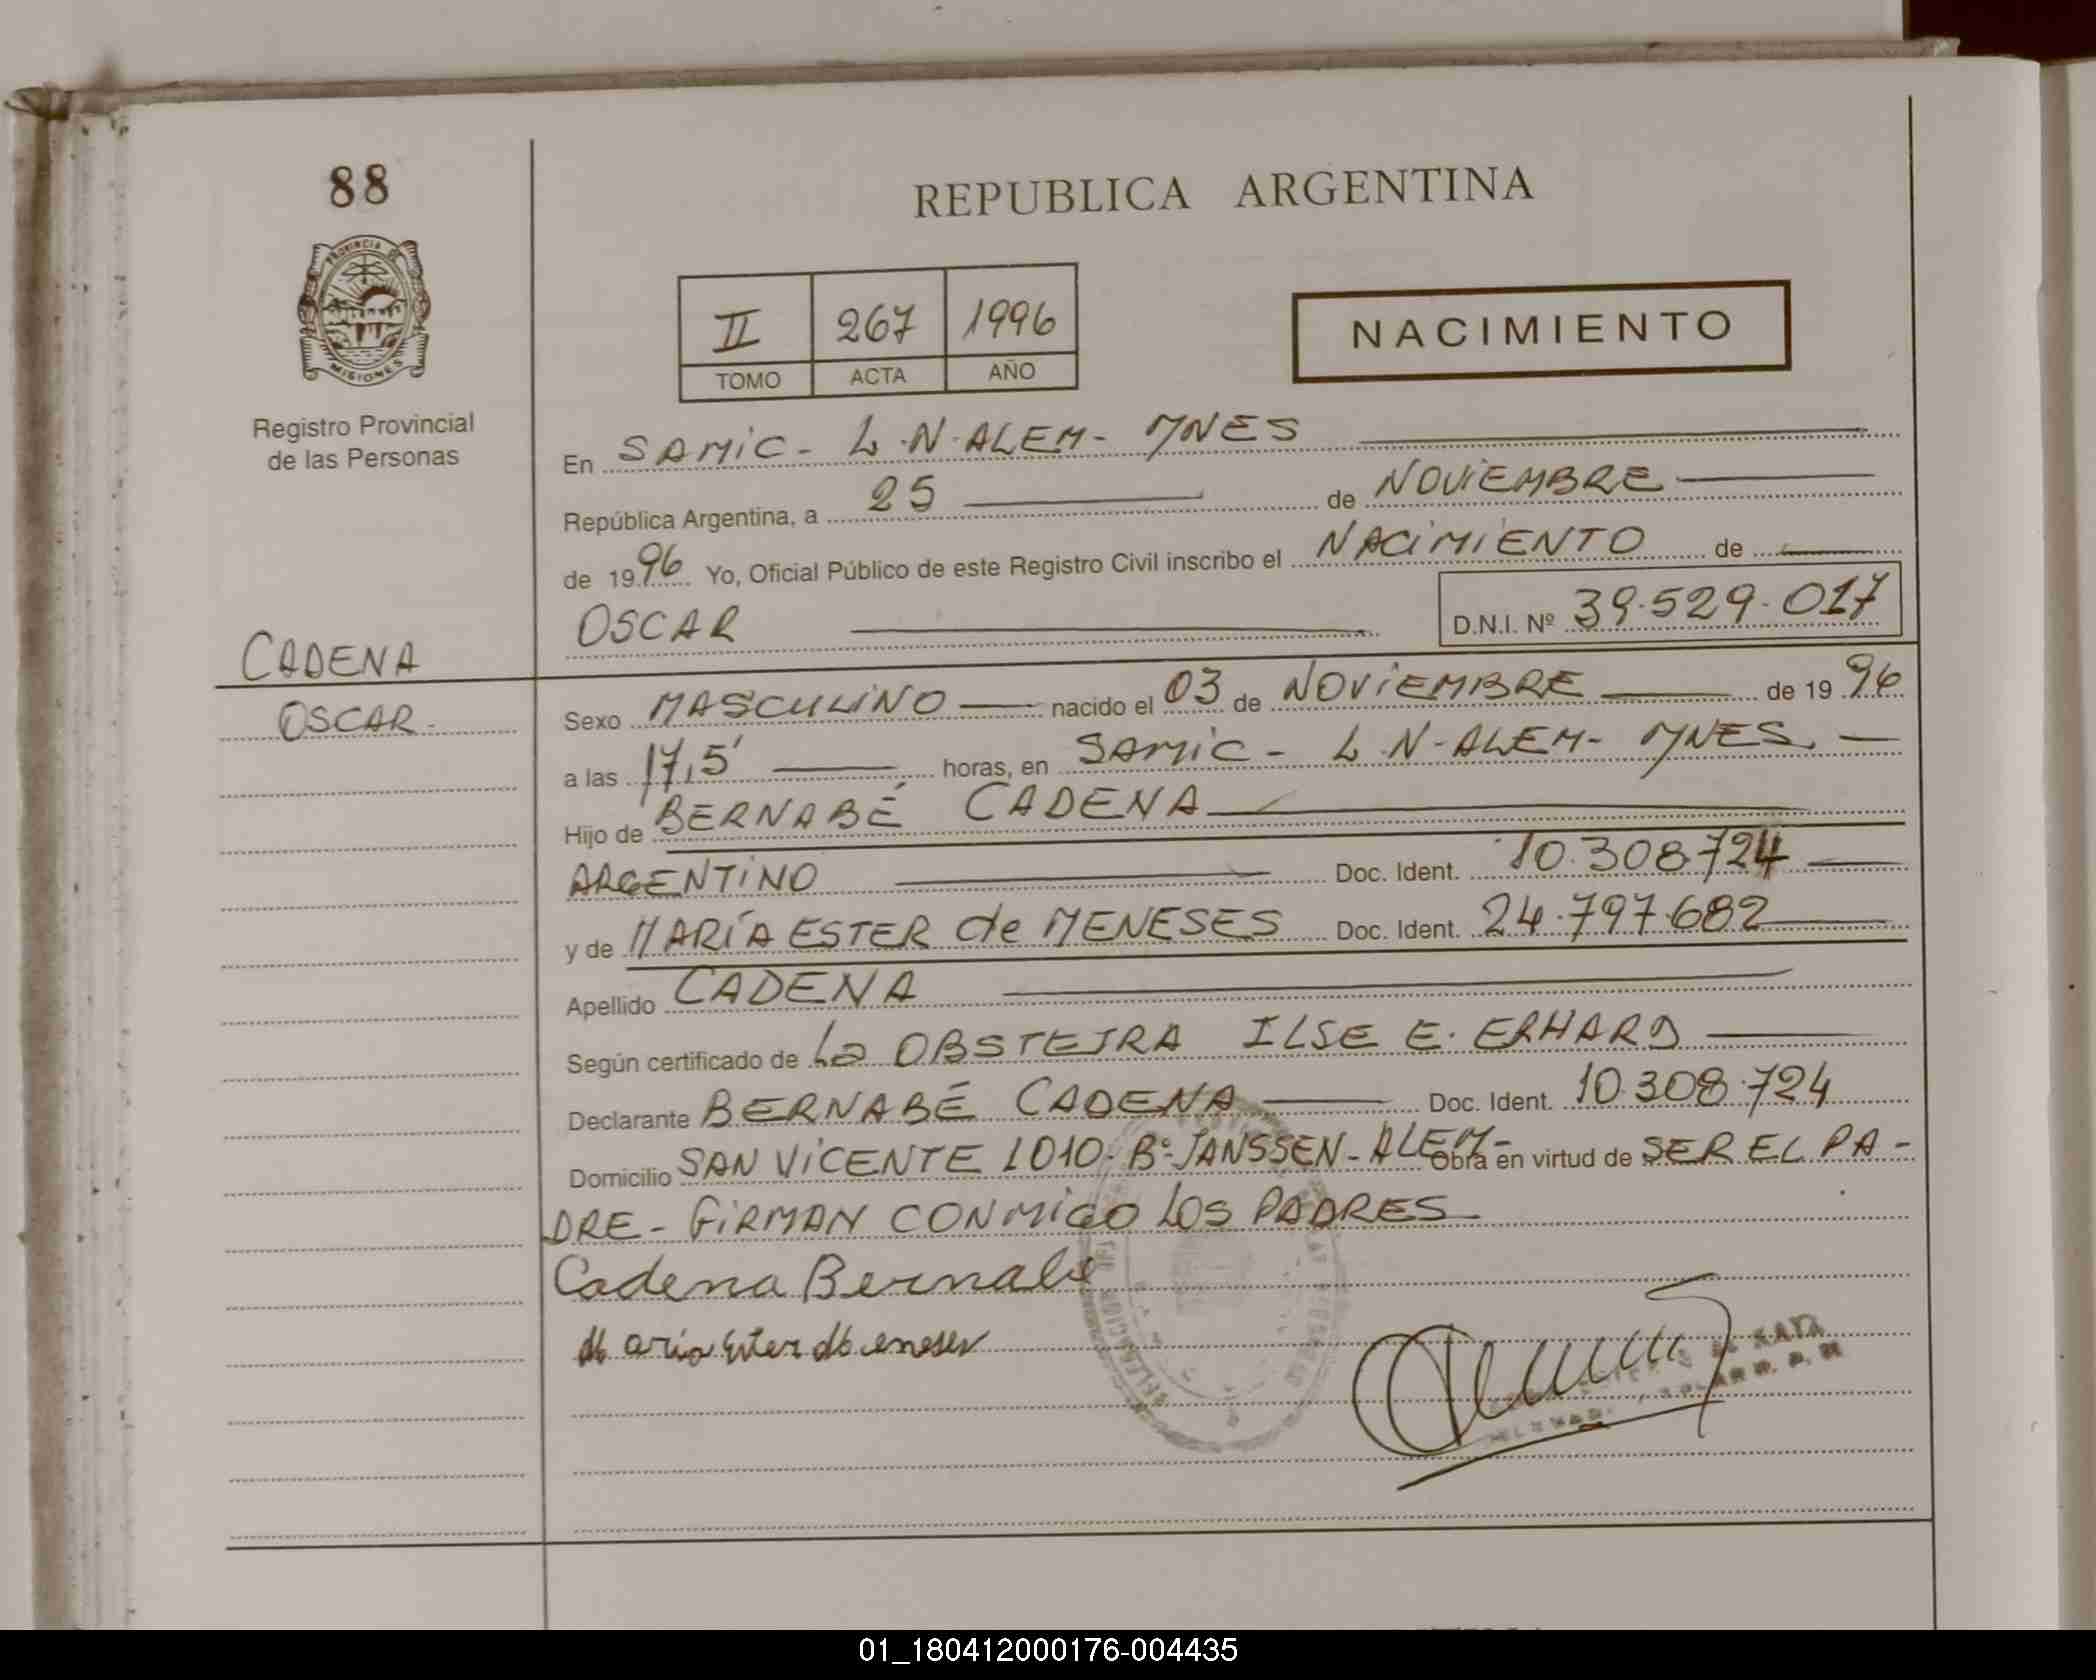 88
REPUBLICA ARGENTINA
PROVINCIA DE
MISIONES
II 267 1996
TOMO ACTA AÑO
NACIMIENTO
Registro Provincial
de las Personas
En SAMIC - L.N. ALEM - MNES
República Argentina, a 25 de NOVIEMBRE
de 1996 Yo, Oficial Público de este Registro Civil inscribo el NACIMIENTO de
OSCAR D.N.I. Nº 39.529.017
CADENA
OSCAR.
Sexo MASCULINO nacido el 03 de NOVIEMBRE de 1996
a las 17,5' horas, en SAMIC - L.N-ALEM- MNES.
Hijo de BERNABÉ CADENA
ARGENTINO Doc. Ident. 10.308.724
y de MARÍA ESTER de MENESES Doc. Ident. 24.797.682
Apellido CADENA
Según certificado de La OBSTETRA ILSE E. ERHARD
Declarante BERNABÉ CADENA Doc. Ident. 10.308.724
Domicilio SAN VICENTE 1010. Bº JANSSEN - ALEM - Obra en virtud de SER EL PA-
DRE - FIRMAN CONMIGO LOS PADRES
Cadena Bernabe
Maria Ester Meneses
01_180412000176-004435